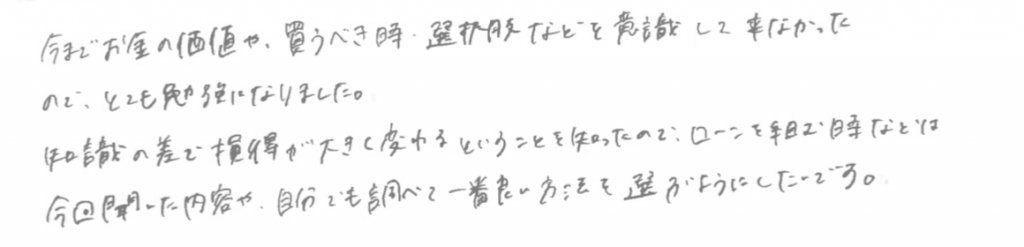 今までお金の価値や、買うべき時・選択肢などを意識して来なかった
ので、とても勉強になりました。
知識の差で損得が大きく変わるということを知ったので、ローンを組む時などは
今回聞いた内容や、自分でも調べて一番良い方法を選ぶようにしたいです。